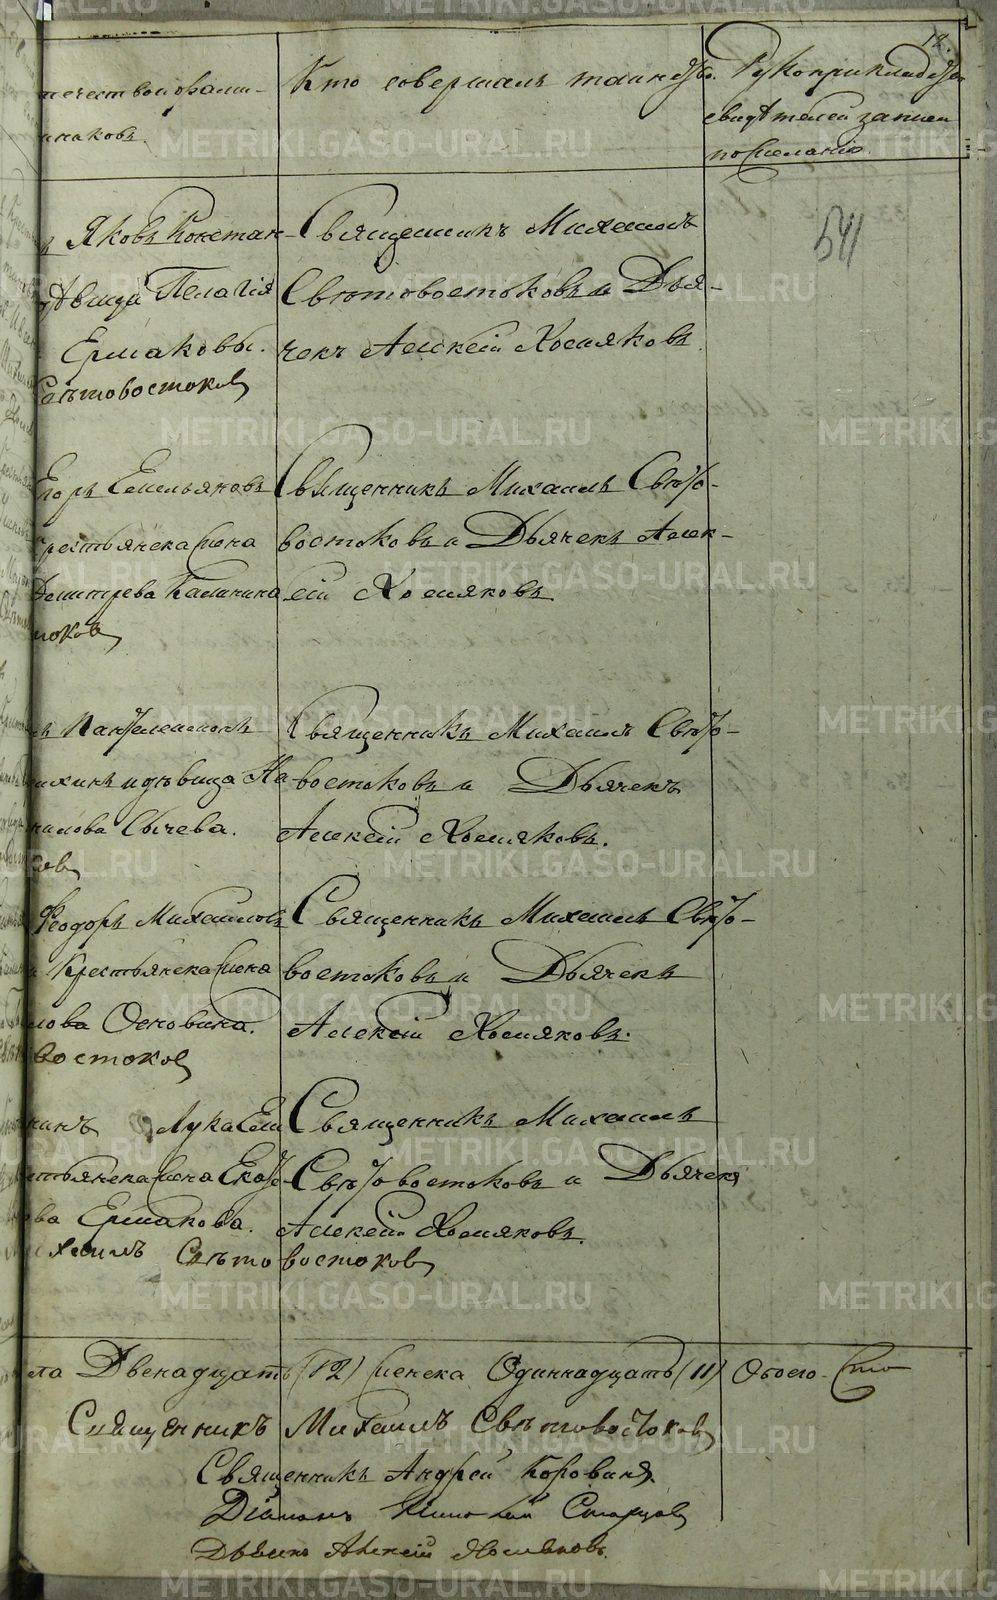 12.
отчествомофами-
знаковъ.
Кто совершалъ таинство.
Рукоприкладство
свидѣтелей записи
пожеланію.
541
Яковъ Констан-
Давида Пелагія
Ермаковы.
Свѣтовостоковъ
Священникъ Михаилъ
Свѣтовостоковъ и Дья-
чекъ Алексѣй Хомяковъ
Егоръ Емельяновъ
крестьянска жена
Дмитрева Калинина
стоковъ
Священникъ Михаилъ Свѣто-
востоковъ и Дьячекъ Алек-
сѣй Хомяковъ
Пантелеимонъ
и дѣвица На
Сычева.
ковъ
Священникъ Михаилъ Свѣто-
востоковъ и Дьячекъ
Алексѣй Хомяковъ.
Ѳеодоръ Михайловъ
Крестьянска жена
лова Основина.
востоковъ
Священникъ Михаилъ Свѣто-
востоковъ и Дьячекъ
Алексѣй Хомяковъ.
нинъ Лука Ем
стьянска жена Екате-
ва Ермакова.
Михаилъ Свѣтовостоковъ
Священникъ Михаилъ
Свѣтовостоковъ и Дьячекъ
Алексѣй Хомяковъ.
ла Двенадцать (12) Женска Одиннадцать (11) Обоего
Священникъ Михаилъ Свѣтовостоковъ
Священникъ Андрей Коровинъ.
Діаконъ Старцовъ
Дьячекъ Алексѣй Хомяковъ.
METRIKI.GASO-URAL.RU